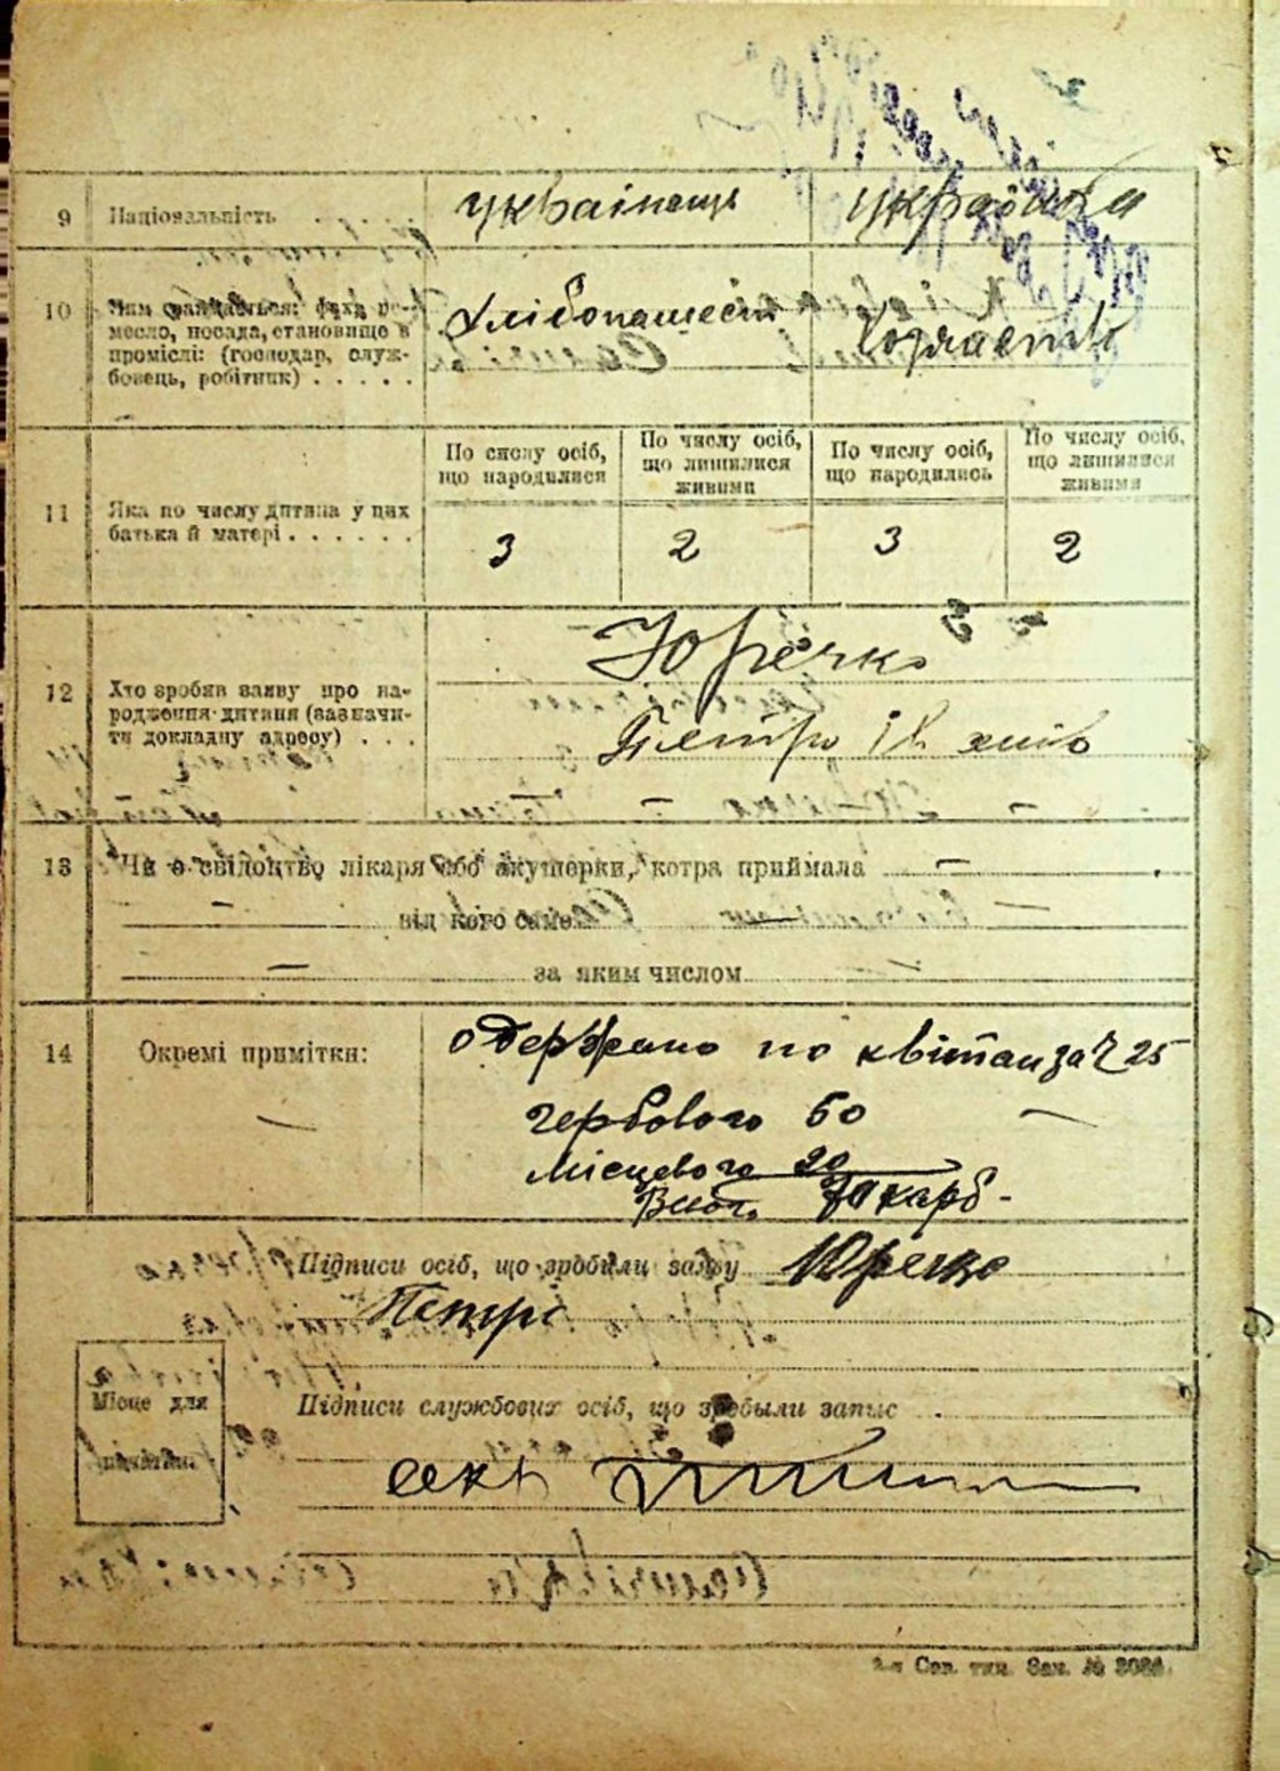 9 Національність . . . . українець українка
10 Чим займається: фах, ре-
месло, посада, становище в
проміслі: (господар, служ-
бовець, робітник) . . . . .
хлібопашест
11 Яка по числу дитина у цих
батька й матері . . . . . .
По числу осіб, що народилися
По числу осіб, що лишилися живими
По числу осіб, що народились
По числу осіб, що лишилися живими
3 2 3 2
12 Хто зробив заяву про на-
родження дитини (зазначи-
ти докладну адресу) . . .
Юречко
Петро
13 Чи є свідоцтво лікаря або акушерки, котра приймала —
— від кого саме —
— за яким числом —
14 Окремі примітки:
—
одержано по квітан за Ч 25
гербового 50 —
місцевого 20
Всього 70 карб -
Підписи осіб, що зробили заяву Юречко
Петро
Місце для
печатки.
Підписи службових осіб, що зробыли запис .
секр
2-я Сов. тип. Зак. №